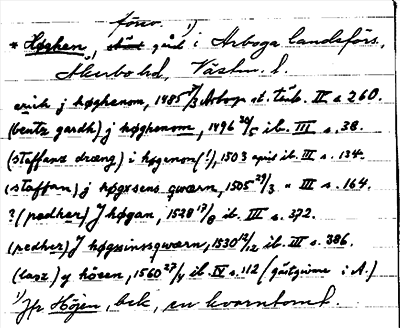 försv. 1)
* Høghen, gård i Arboga landsförs.,
Åkerbo hd, Västm. l.
erik j høghenom, 1485 /3 Arboga st. tänk. II s 260.
(bentz gardh) j høghenom, 1496 30/5 ib. III s. 38.
(staffans dræng) i høgenon (!), 1503 april ib. III s. 134.
(staffan) j høgxsens qwærn, 1505 29/3 " III s. 164.
? (pædher) J høgan, 1528 17/8 ib. III s. 372.
(pedher) J høgsinssqwærn, 1530 12/12 ib. III s. 386.
(lasz) y höеen, 1560 27/4 ib IV s. 112 (gästgivare i A.)
1) Jfr Höjen, bek, en kvarntomt.